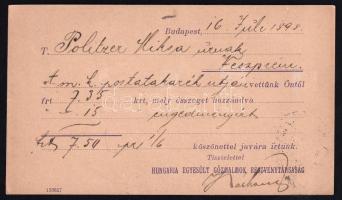 Budapest, 16 Juli 1898.
T. Politzer Miksa úrnak
Veszprém
A m. k. postatakarék utján vettünk Öntől
frt 7.35 krt, mely összeget hozzáadva
" - 15 engedményért
frt 7.50 pr 1/6
köszönettel javára írtunk.
Tisztelettel
HUNGARIA EGYESÜLT GŐZMALMOK RÉSZVÉNYTÁRSASÁG